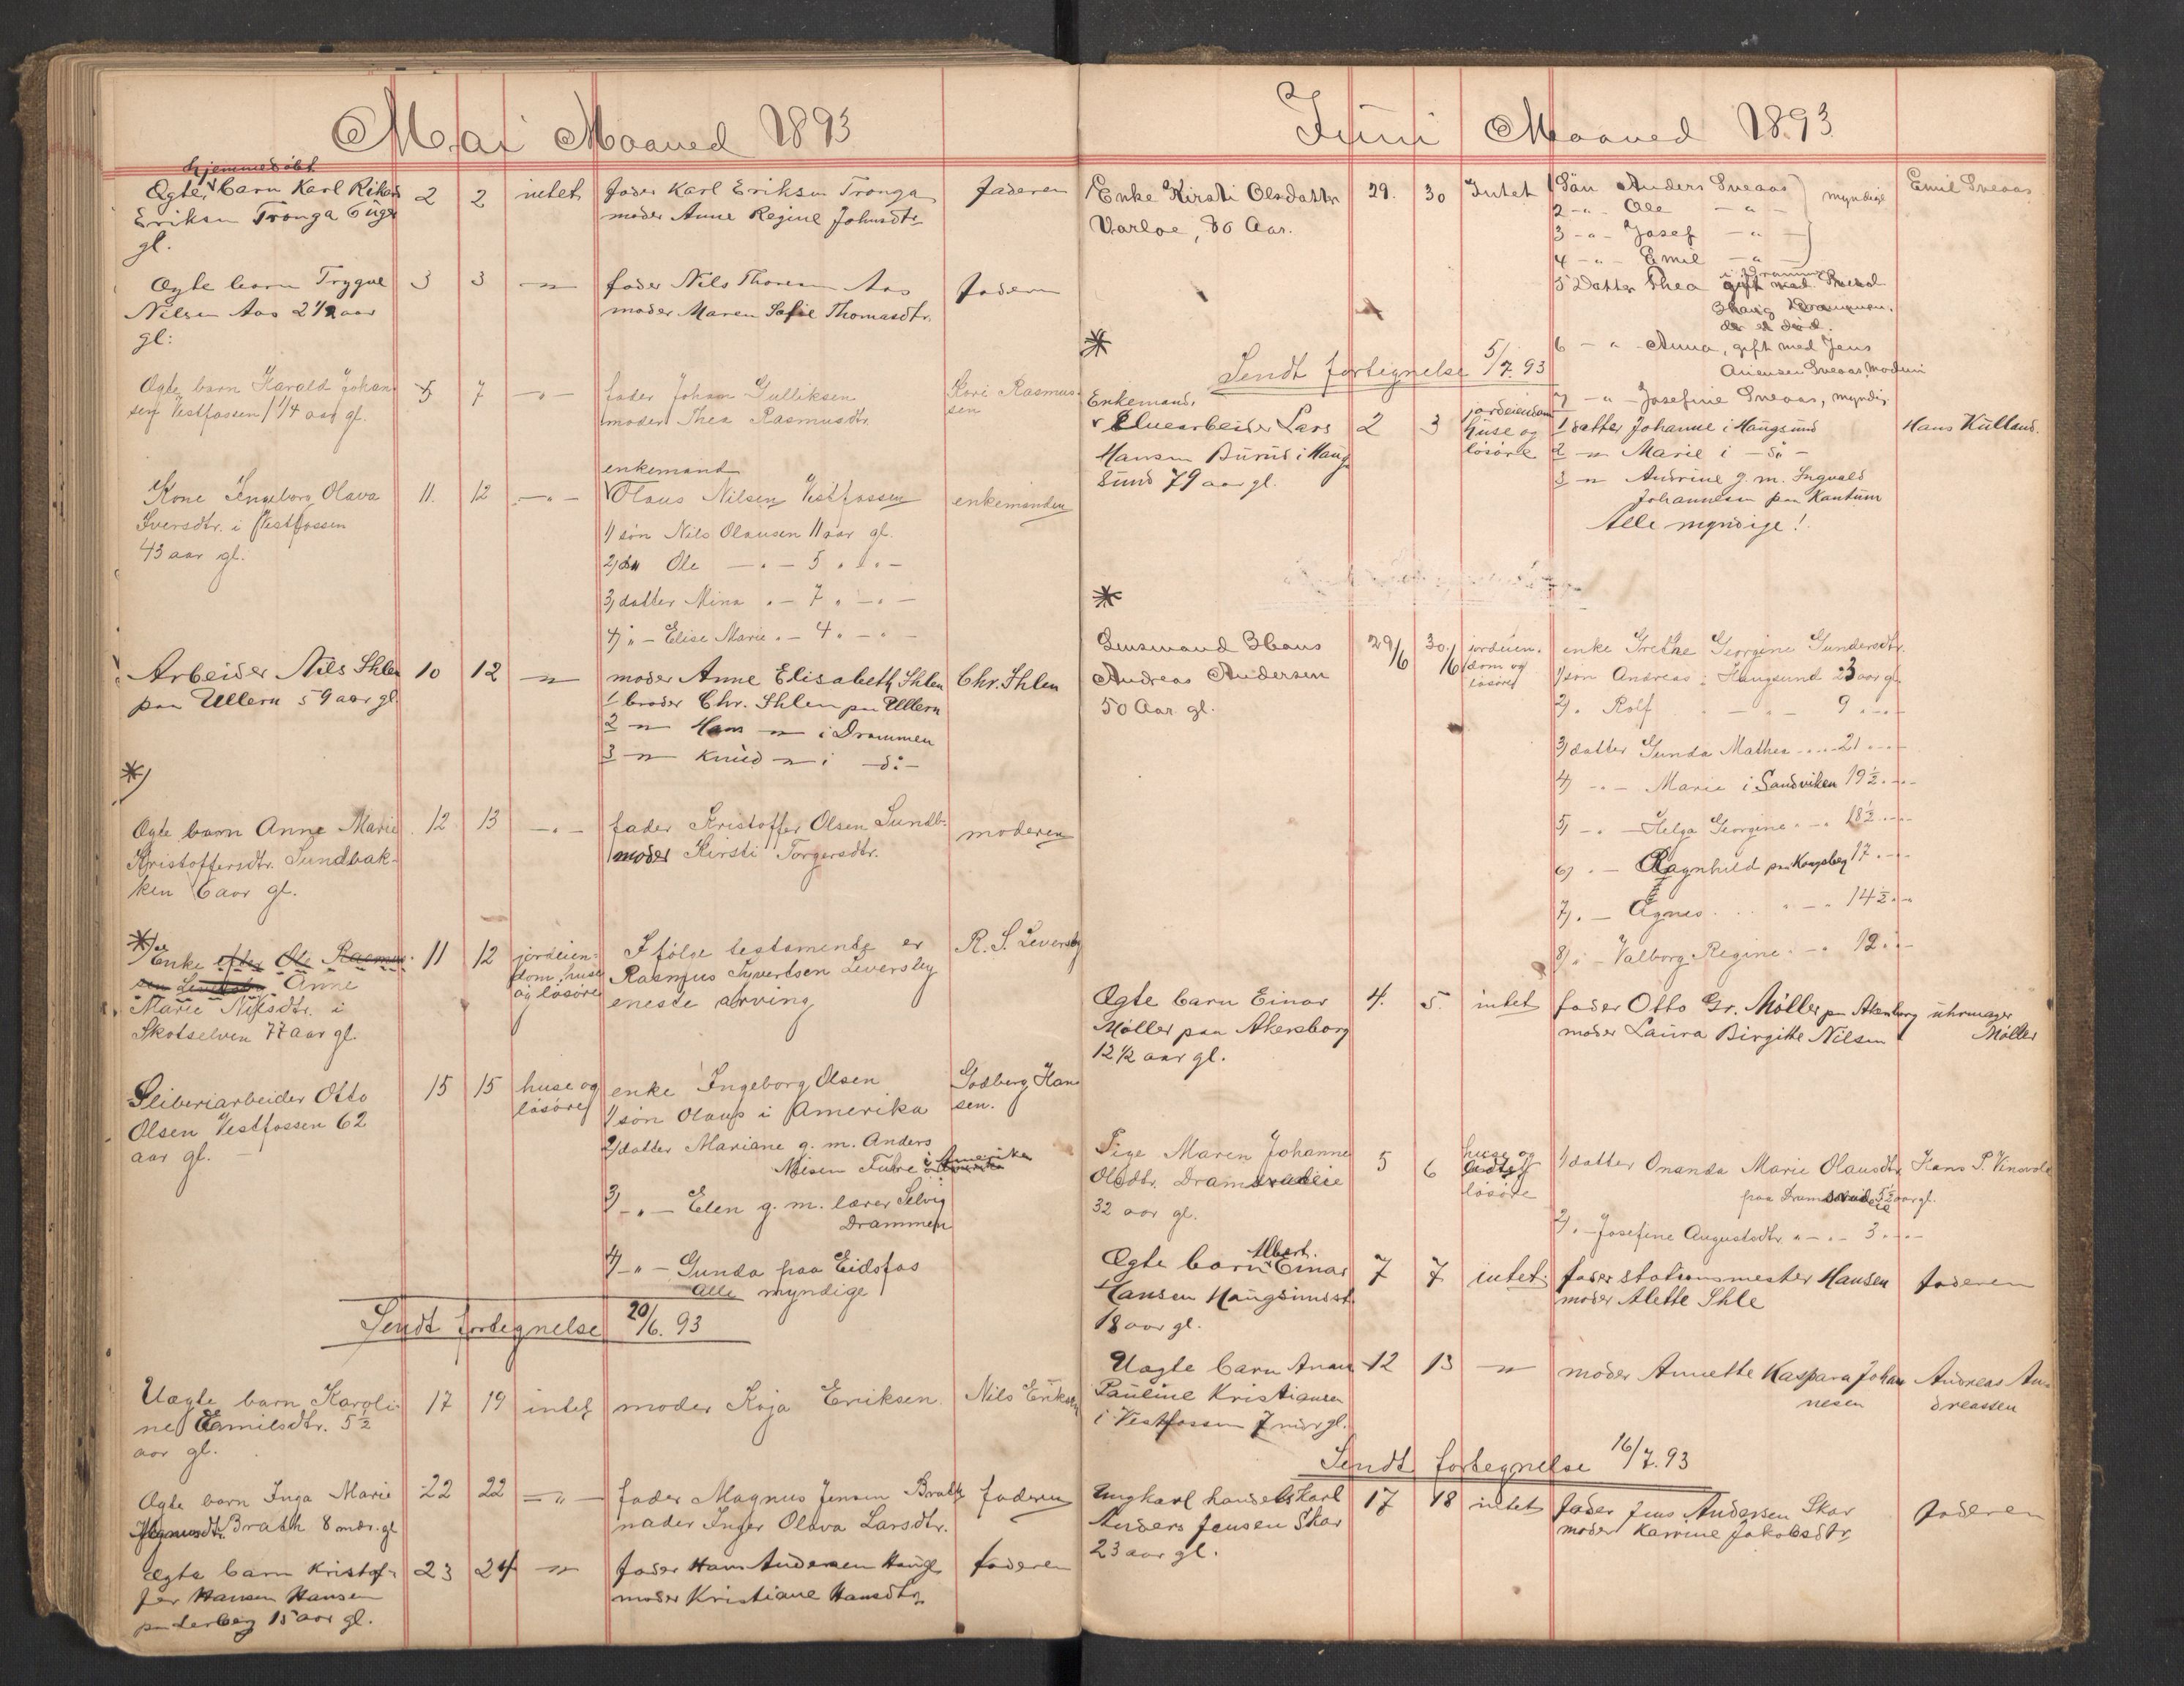 Mai Maaned 1893
hjemmedøbt
Ægte barn Karl Rikard 2 2 intet fader Karl Eriksen Tronga faderen
Eriksen Tronga 6 uger moder Anne Regine Johnsdtr.
gl.
Ægte barn Trygve 3 3 -"- fader Nils Thoresen Aas faderen
Nilsen Aas 2 1/2 aar moder Maren Sofie Thomasdtr.
gl:
Ægte barn Harald Johan- 5 7 -"- fader Johan Gulliksen Kari Rasmus-
sen Vestfossen 1 1/4 aar gl. moder Thea Rasmusdtr. sen
enkemand
Kone Ingeborg Olava 11. 12 -"- Olaus Nilsen Vestfossen enkemanden
Iversdtr. i Vestfossen 1) søn Nils Olausen 11 aar gl.
43 aar gl. 2) do Ole -"- 5 " " -
3) datter Mina "- 7 " -"-
4) "- Elise Marie "- 4 " -"-
Arbeider Nils Ihlen 10 12 -"- moder Anne Elisabeth Ihlen Chr. Ihlen
paa Ullern 59 aar gl. 1 broder Chr. Ihlen paa Ullern
2 -"- Hans -"- i Drammen
3 -"- Knud -"- i -do-
*)
Ægte barn Anne Marie 12 13 -"- fader Kristoffer Olsen Sundb. moderen
Kristoffersdtr. Sundbak- moder Kirsti Torgersdtr.
ken 6 aar gl.
*) Enke efter Ole Rasmus- 11 12 jordeien- Ifølge testamente er R. S. Leversby
sen Leversby Anne dom, huse Rasmus Syvertsen Leversby
Marie Nilsdtr. i og løsøre eneste arving
Skotselven 77 aar gl.
Sliberiarbeider Otto 15 15 huse og enke Ingeborg Olsen Godberg Han-
Olsen Vestfossen 62 løsøre 1) søn Olaus i Amerika sen.
aar gl. - 2) datter Mariane g. m. Anders
Nilsen Fuhre i Amerika
3) -"- Elen g. m. lærer Selvig
Drammen
4) -"- Gunda paa Eidsfos
alle myndige
Sendt fortegnelse 20/6. 93
Uægte barn Karoli- 17 19 intet moder Kaja Eriksen. Nils Eriksen
ne Emilsdtr. 5 1/2
aar gl.
Ægte barn Inga Marie 22 22 -"- fader Magnus Jensen Brath faderen
Magnusdtr. Brath 8 mdr. gl. moder Inger Olava Larsdtr.
Ægte barn Kristof- 23 24 -"- fader Hans Andersen Haugl. faderen
fer Hansen Hansen moder Kristiane Hansdtr.
15 aar gl.
Juni Maaned 1893
Enke Kirsti Olsdatter 29. 30 Intet 1 Søn Anders Sveaas myndige Emil Sveaas
Varloe, 80 Aar. 2 -"- Ole -"-
3 -"- Josef -"-
4 -"- Emil -"-
i Drammen
5 Datter Thea gift med
Drammen.
der er død.
* 6 -"- Anna, gift med Jens
Sendt fortegnelse 5/7. 93
Sveaas, Modum
7 -"- Josefine Sveaas, myndig
Enkemand,
Elvearbeider Lars 2 3 jordeiendom 1 datter Johanne i Haugsund Hans Kulland.
Hansen Burud i Haug- huse og 2 -"- Marie i -do-
sund 79 aar gl. løsøre 3 -"- Andrine g. m. Ingvald
Johannesen paa Kantum
Alle myndige!
*
Gaasmand Hans 29/6 30/6 jordeien- enke Grethe Georgine Gundersdtr.
Andreas Andersen dom og 1) søn Andreas i Haugsund 23 aar gl.
50 Aar gl. løsøre 2) " Rolf " - " - 9 " -"-
3) datter Gunda Mathea -"- 21 -"-
4) -"- Marie i Sandviken 19 1/2 -"-
5) -"- Helga Georgine -"- 18 1/2 -"-
6) "- Ragnhild paa Kongsberg 17 -"-
7) "- Agnes " -"- 14 1/2 -"-
8) "- Valborg Regine -"- 12 -"-
Ægte barn Einar 4. 5. intet fader Otto Gr. Møller paa Akersborg uhrmager
Møller paa Akersborg moder Laura Birgitte Nilsen Møller
12 1/2 aar gl.
Pige Maren Johanne 5 6 huse og 1) datter Onanda Marie Olausdtr. Hans P. Vinsvold
Olsdtr. Dramdraleie løsøre paa 5 1/2 aar gl.
32 aar gl. 2) "- Josefine Augustsdtr. " -"- 3 -"-
Albert.
Ægte barn Einar 7 7 intet fader stationsmester Hansen faderen
Hansen Haugsundst. moder Alette Ihle
18 aar gl.
Uægte barn Anna 12 13 -"- moder Annette Kaspara Johan- Andreas An-
Pauline Kristiansen nesen dreassen
i Vestfossen 7 mdr gl.
Sendt fortegnelse 16/7. 93
Ungkarl handelskarl 17 18 intet fader Jens Andersen Skar faderen
Anders Jensen Skar moder Karrine Jakobsdtr.
23 aar gl.